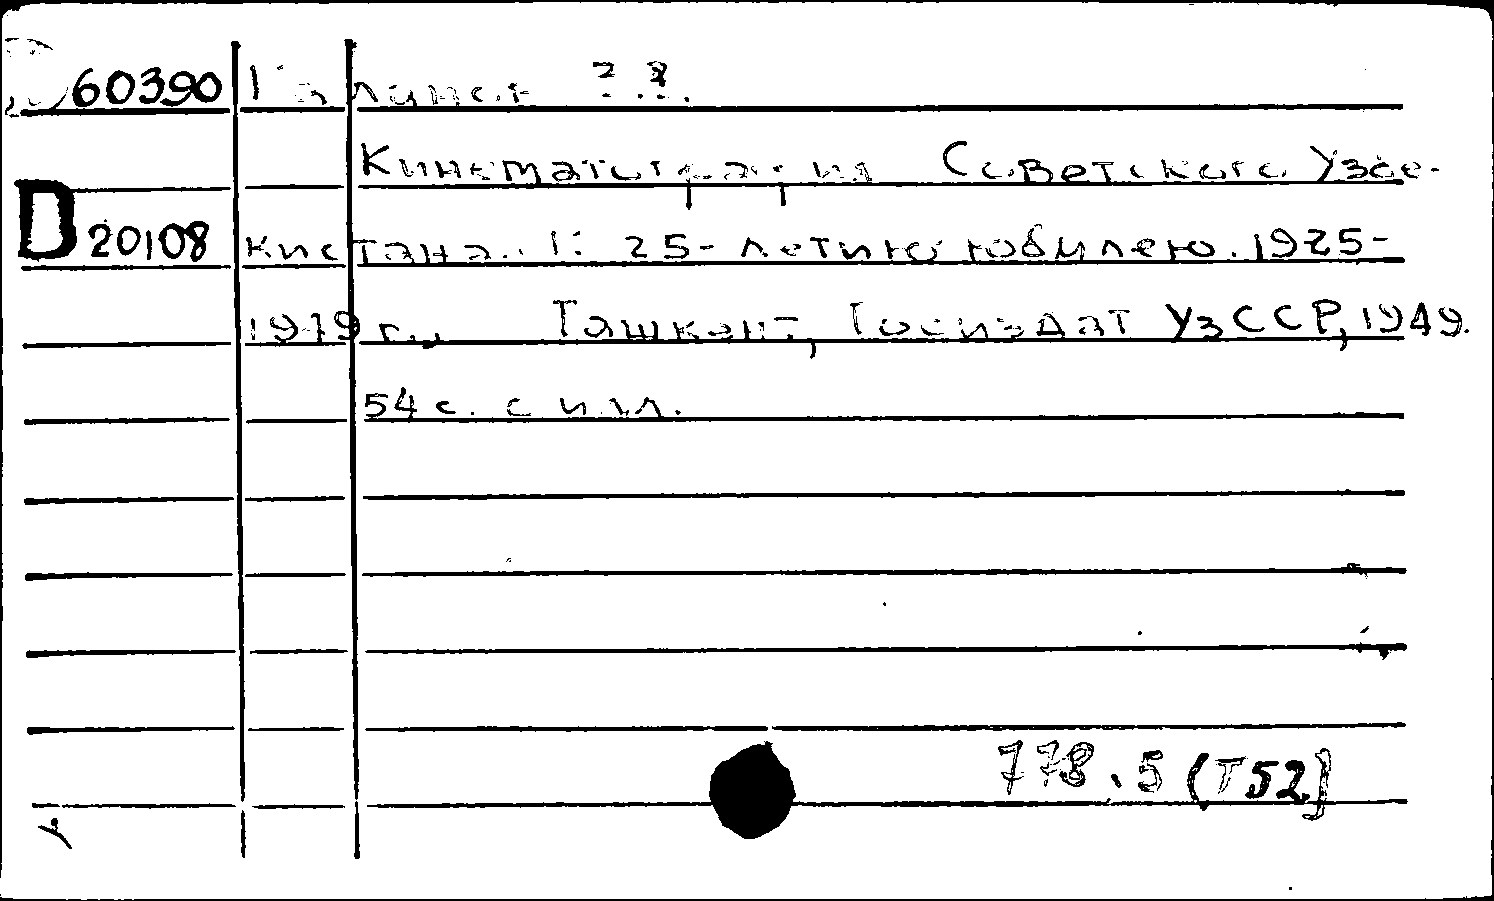 60390
Кинематография Советского Узбе-
D 20108 кистана. К 25-летию юбилею. 1925-
1949 г., Ташкент, Госиздат УзССР, 1949.
54 с. с илл.
778.5 (Т52)